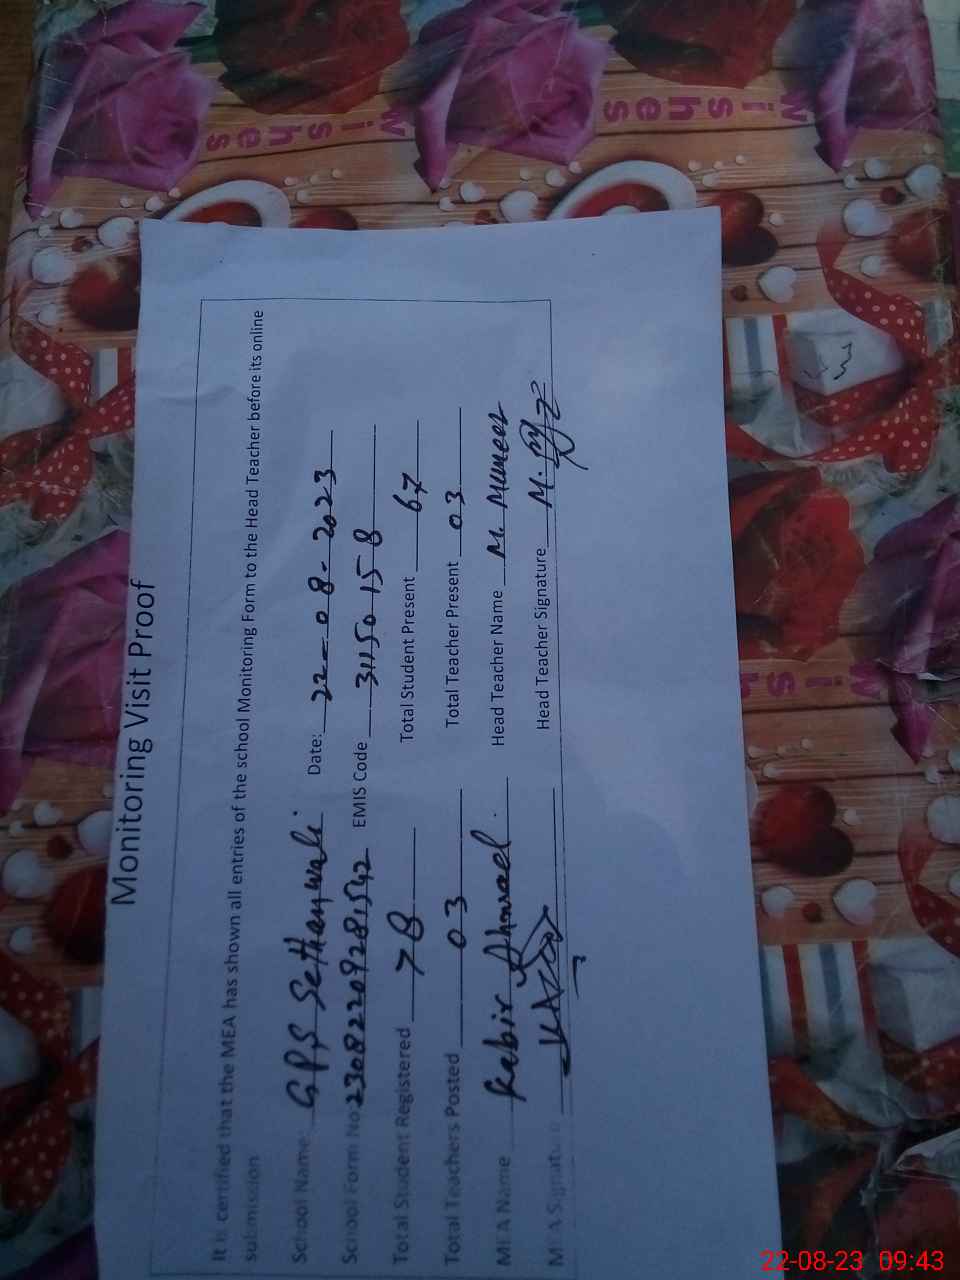 Monitoring Visit Proof
It is certified that the MEA has shown all entries of the school Monitoring Form to the Head Teacher before its online
submission
School Name: GPS Sethanwali Date: 22-08-2023
School Form No: 230822092281542 EMIS Code 31150158
Total Student Registered 78 Total Student Present 67
Total Teachers Posted 03 Total Teacher Present 03
MEA Name Kabir Ahmed. Head Teacher Name M. Muneer
MEA Signature Head Teacher Signature M.
wishes
wishes
wis
22-08-23 09:43